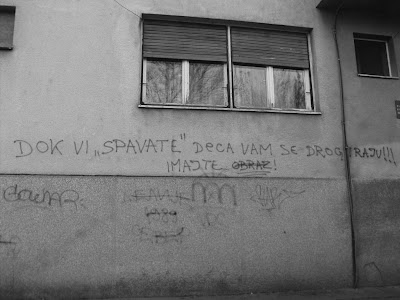 DOK VI „SPAVATE" DeCA VAM SE DROGIRAJU!!!
IMAJTE OBRAZ!